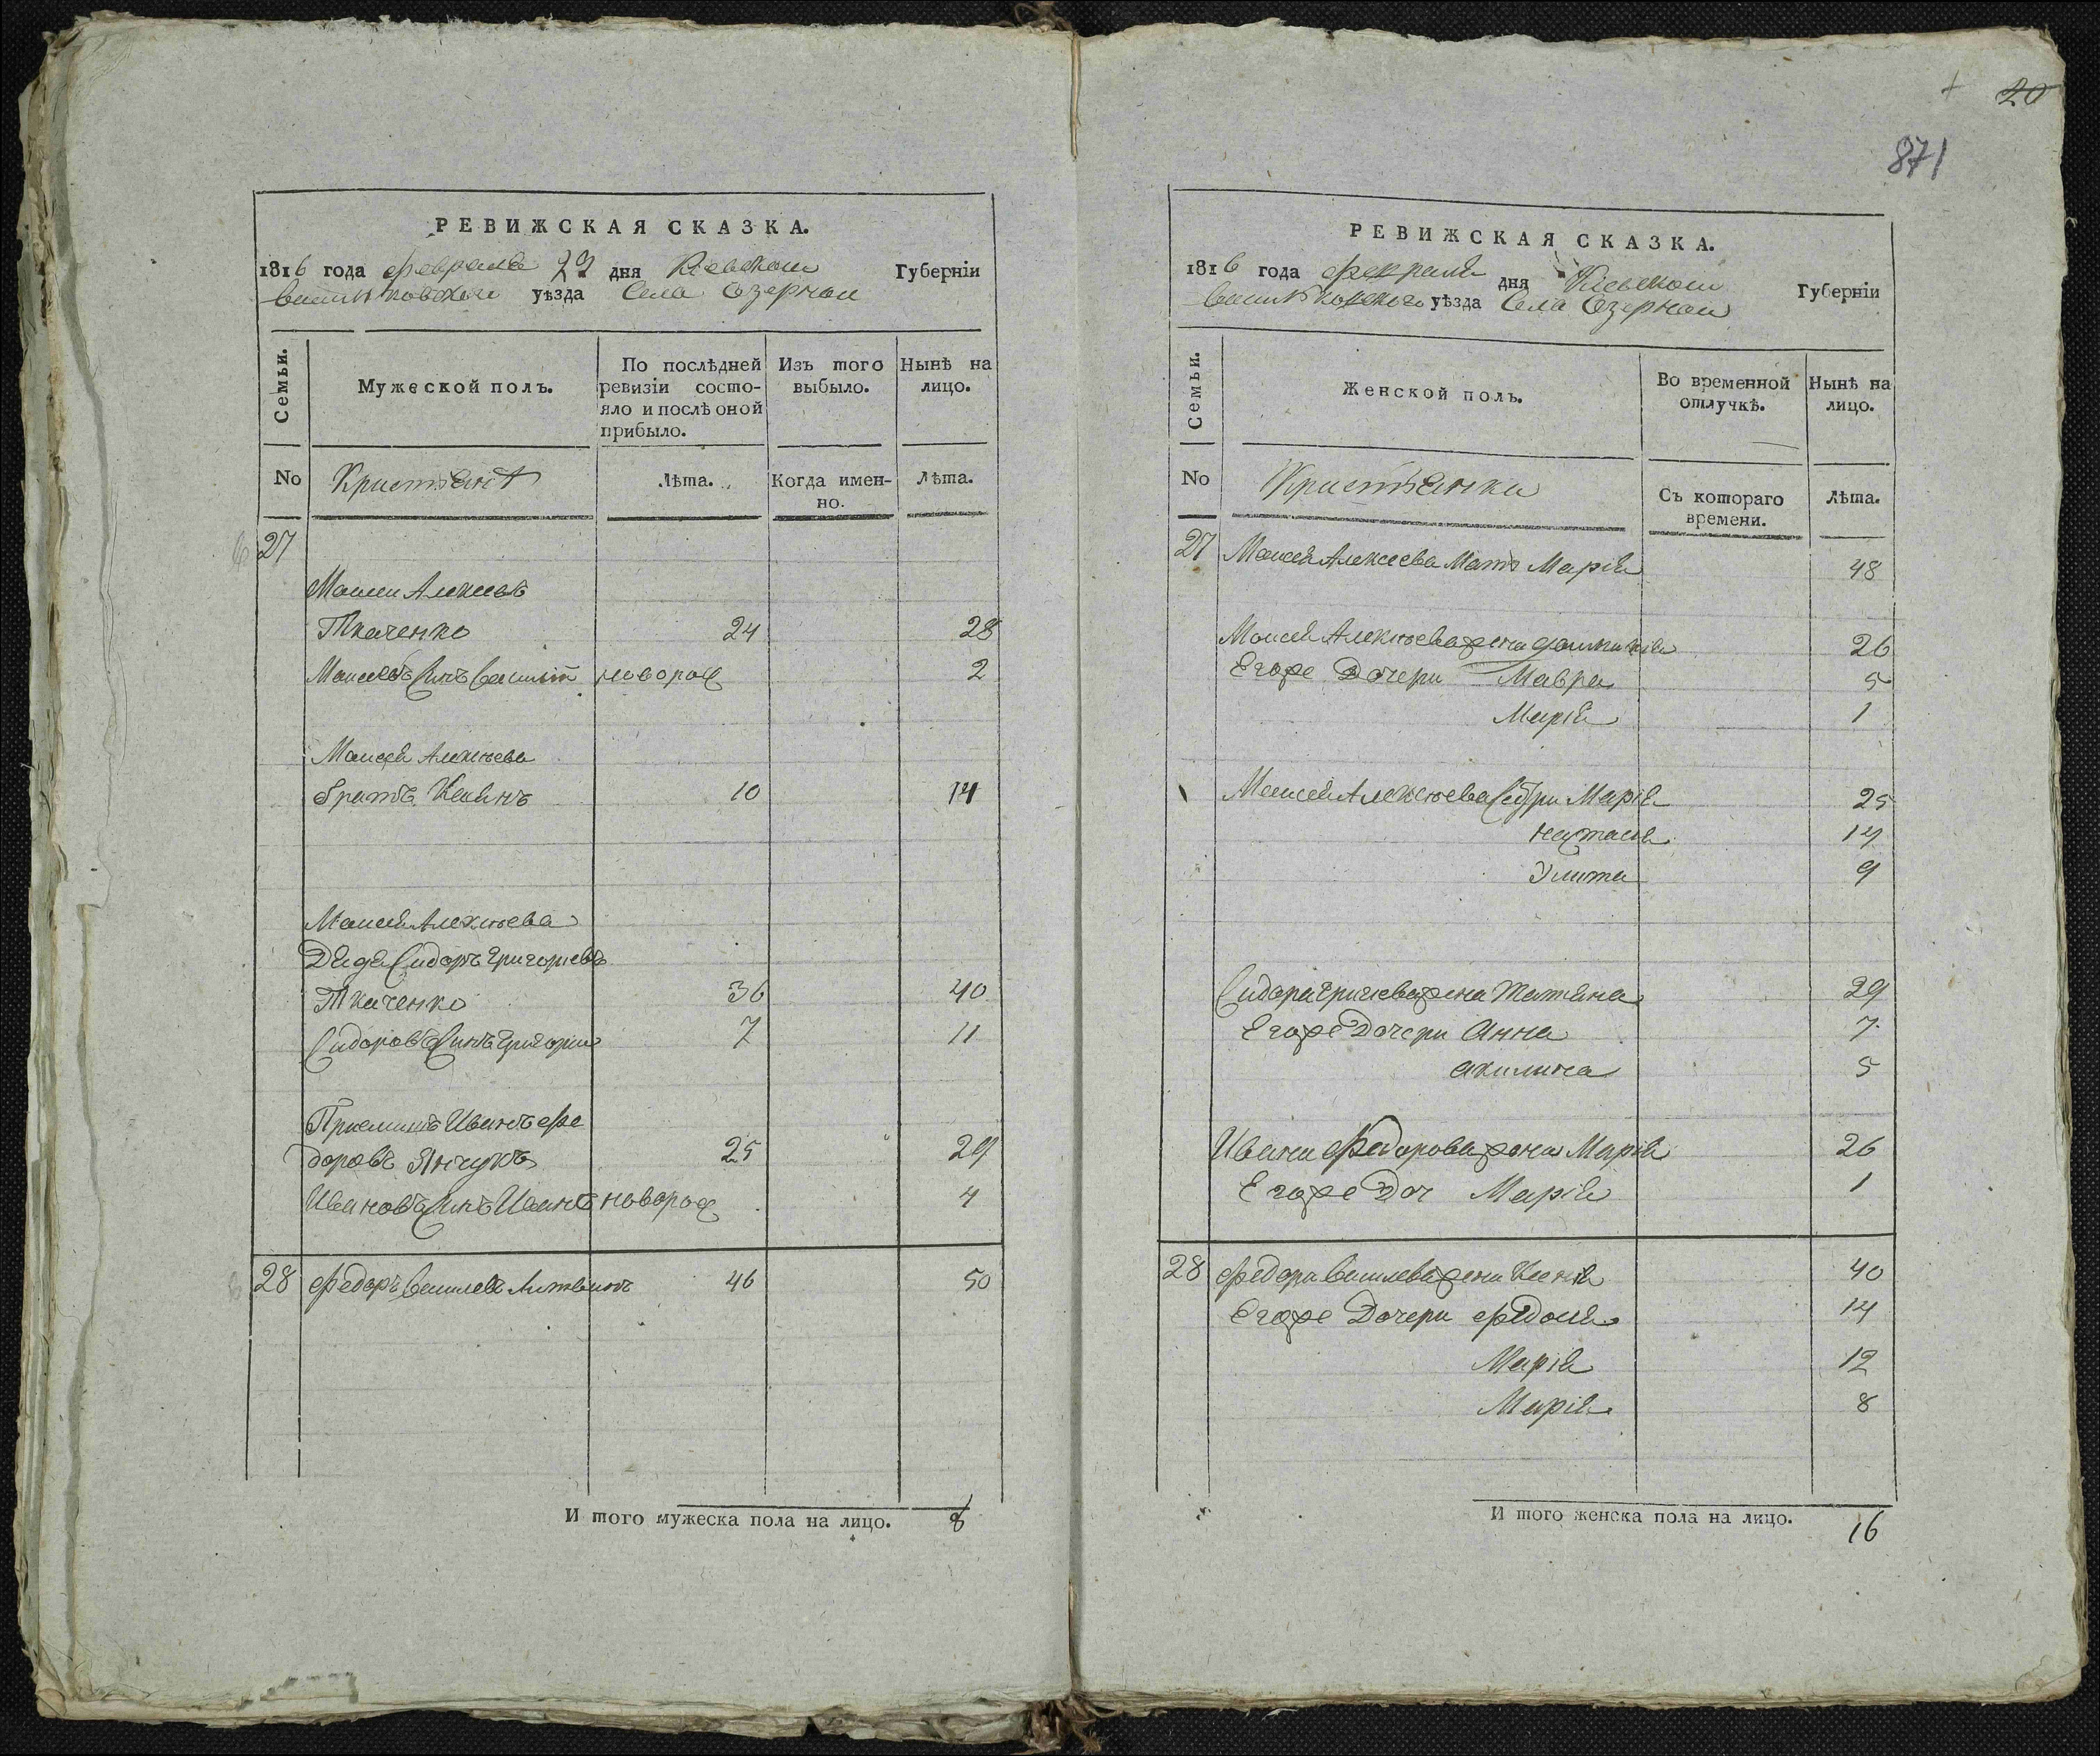 РЕВИЖСКАЯ СКАЗКА.
1816 года февраля 29 дня Киевской Губерніи
васильковского уѣзда Села Озерной
Семьи.
Мужеской полъ.
По послѣдней ревизіи состо-
яло и послѣ оной прибыло.
Изъ того выбыло.
Нынѣ на лицо.
No Кристіянѣ Лѣта. Когда имен-
но. Лѣта.
27
Моисей Алексеевъ
Ткаченко 24 28
Моисеевъ Синъ Василій новорож 2
Моисея Алексѣева
братъ 10 14
Моисея Алексѣева
Дядя Сидоръ Григориевъ
Ткаченко 36 40
Сидоровъ Синъ Григории 7 11
Приемишъ Иванъ Фе
доровъ Янчукъ 25 29
Ивановъ Синъ Иванъ новорож 4
28 Федоръ Василевъ Литвинъ 46 50
И того мужеска пола на лицо. 8
20
871
РЕВИЖСКАЯ СКАЗКА.
1816 года февраля дня Киевской Губерніи
васильковского уѣзда Села Озерной
Семьи.
Женской полъ.
Во временной отлучкѣ.
Нынѣ на лицо.
No Кристіянки Съ котораго
времени. Лѣта.
27 Моисея Алексеева Мать Марія 48
Моисея Алексѣева жена 26
Егоже Дочери Мавра 5
Марія 1
Моисея Алексѣева Сестри Марія 25
Наталія 14
Улита 9
Сидора Григиева жена Татіяна 29
Егоже Дочери Анна 7
Акилина 5
Ивана Федорова жена Марія 26
Егоже Доч Марія 1
28 Федора Василева жена Ксенія 40
Егоже Дочери Федосія 14
Марія 12
Марія 8
И того женска пола на лицо. 16